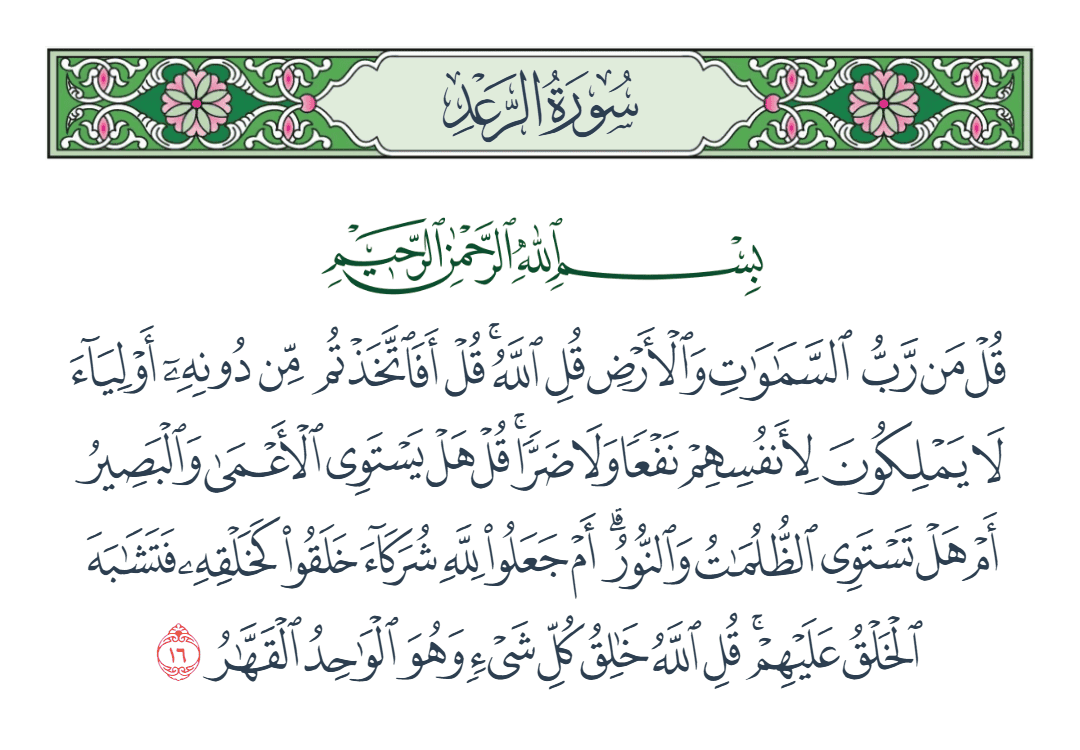 سُورَةُ الرَّعْدِ
بِسْمِ ٱللَّهِ ٱلرَّحْمَٰنِ ٱلرَّحِيمِ
قُلْ مَن رَّبُّ ٱلسَّمَٰوَٰتِ وَٱلْأَرْضِ قُلِ ٱللَّهُ ۚ قُلْ أَفَٱتَّخَذْتُم مِّن دُونِهِۦٓ أَوْلِيَآءَ
لَا يَمْلِكُونَ لِأَنفُسِهِمْ نَفْعًا وَلَا ضَرًّا ۚ قُلْ هَلْ يَسْتَوِى ٱلْأَعْمَىٰ وَٱلْبَصِيرُ
أَمْ هَلْ تَسْتَوِى ٱلظُّلُمَٰتُ وَٱلنُّورُ ۗ أَمْ جَعَلُوا۟ لِلَّهِ شُرَكَآءَ خَلَقُوا۟ كَخَلْقِهِۦ فَتَشَٰبَهَ
ٱلْخَلْقُ عَلَيْهِمْ ۚ قُلِ ٱللَّهُ خَٰلِقُ كُلِّ شَىْءٍ وَهُوَ ٱلْوَٰحِدُ ٱلْقَهَّٰرُ ١٦